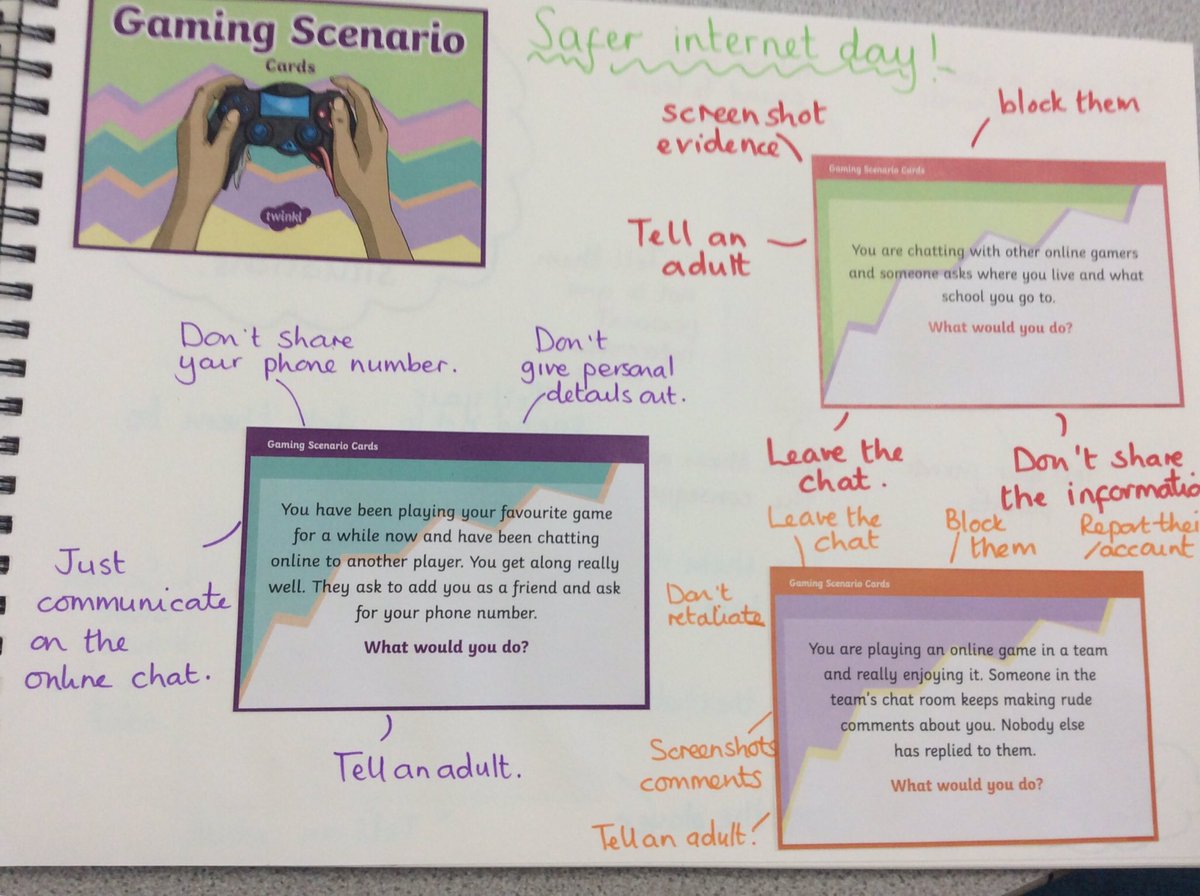 Gaming Scenario
Cards
twinkl
Safer internet day!
screenshot
evidence
block them
Tell an
adult
Gaming Scenario Cards
You are chatting with other online gamers
and someone asks where you live and what
school you go to.
What would you do?
Leave the
chat.
Don't share
the informatio
Don't share
your phone number.
Don't
give personal
details out.
Gaming Scenario Cards
You have been playing your favourite game
for a while now and have been chatting
online to another player. You get along really
well. They ask to add you as a friend and ask
for your phone number.
What would you do?
Just
communicate
on the
online chat.
Tell an adult.
Leave the
chat
Block
them
Report thei
account
Don't
retaliate
Gaming Scenario Cards
You are playing an online game in a team
and really enjoying it. Someone in the
team's chat room keeps making rude
comments about you. Nobody else
has replied to them.
What would you do?
Screenshots
comments
Tell an adult!